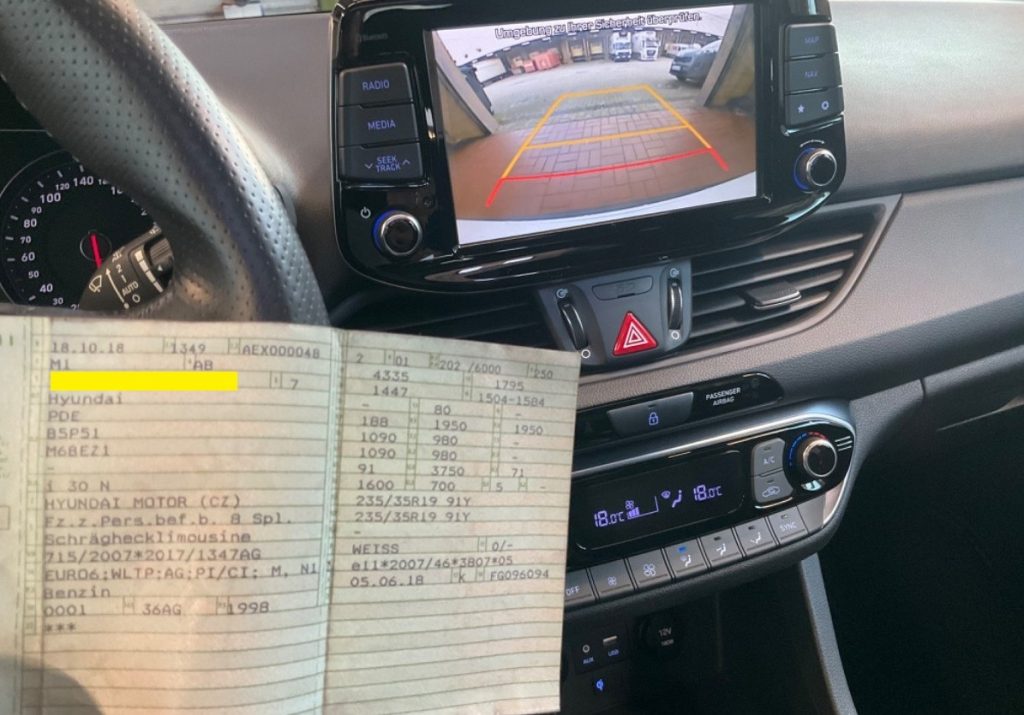 Umgebung zu Ihrer Sicherheit überprüfen.
Bluetooth
RADIO
MEDIA
SEEK
TRACK
MAP
NAV
140
120
100
80
70
60
50
40
30
AUTO
PASSENGER
AIRBAG
A/C
18.0°C 18.0°C
OFF
SYNC
AUX
USB
12V
180W
18.10.18 1349 AEX000048
M1 AB
7
Hyundai
PDE
B5P51
M6BEZ1
-
i 30 N
HYUNDAI MOTOR (CZ)
Fz.z.Pers.bef.b. 8 Spl.
Schräghecklimousine
715/2007*2017/1347AG
EURO6;WLTP;AG;PI/CI: M, NI
Benzin
0001 36AG 1998
***
2 01 202 /6000 250
4335 1795
1447 1504-1584
- 80 -
188 1950 1950
1090 980 -
1090 980 -
91 3750 71
1600 700 5 -
235/35R19 91Y
235/35R19 91Y
-
WEISS 0/-
e11*2007/46*3807*05
05.06.18 K FG096094